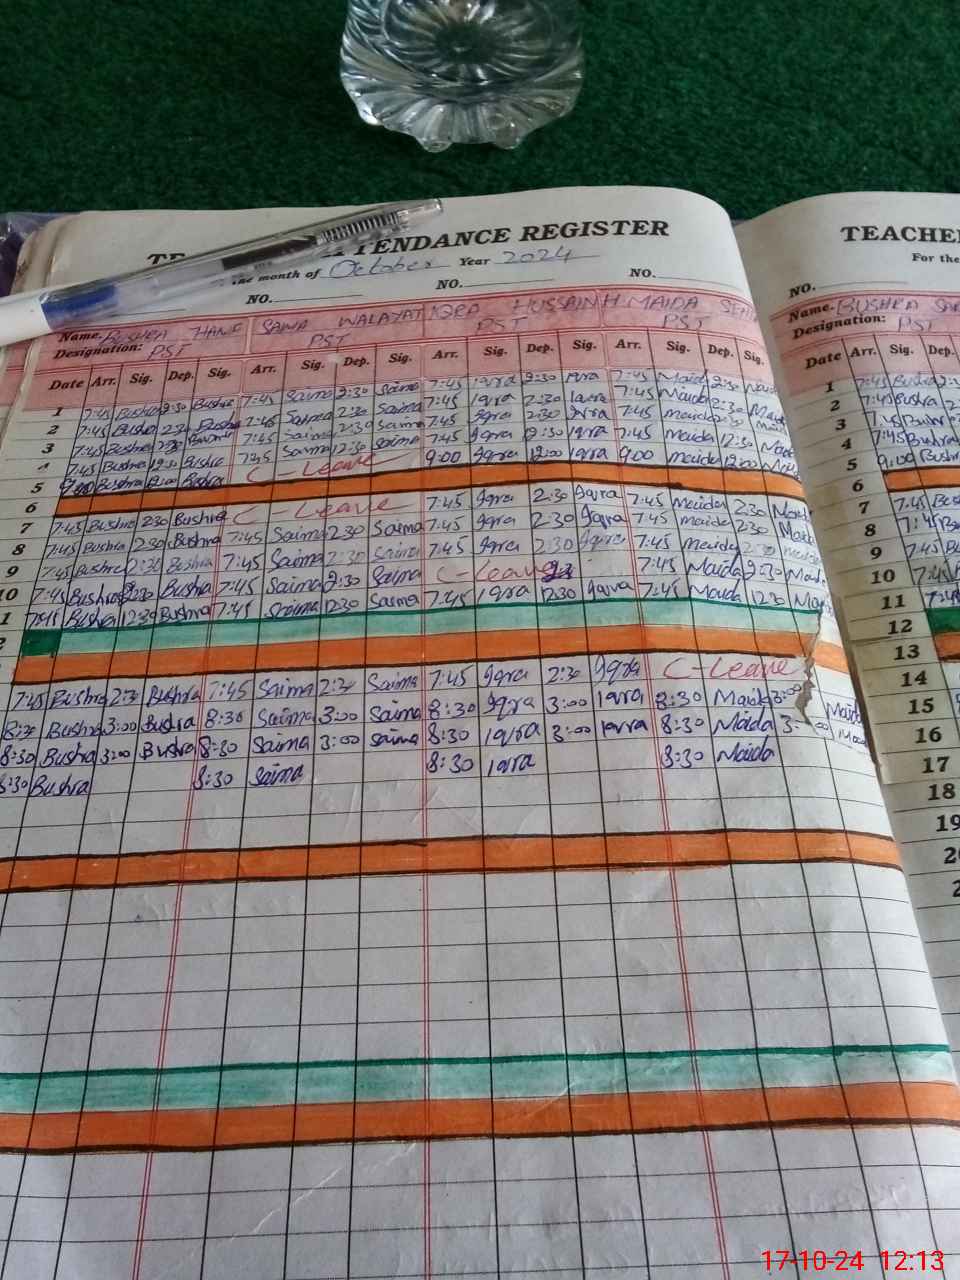 TENDANCE REGISTER
TEACHE
the month of October Year 2024
For the
NO. NO. NO.
NO.
Name. BUSHRA HANIF SAIMA WALAYAT IQRA HUSSAIN H. MAIDA
Name. BUSHRA
Designation: PST PST PST PST
Designation: PST
Date Arr. Sig. Dep. Sig. Arr. Sig. Dep. Sig. Arr. Sig. Dep. Sig. Arr. Sig. Dep. Sig.
Date Arr. Sig. Dep.
1 7:45 Bushra 2:30 Bushra 7:45 Saima 2:30 Saima 7:45 Iqra 2:30 Iqra 7:45 Maida 2:30
1 7:45
2 7:45 Bushra 2:30 Bushra 7:45 Saima 2:30 Saima 7:45 Iqra 2:30 Iqra 7:45 Maida 2:30
2 7:45 Bushra
3 7:45 Bushra 2:30 Bushra 7:45 Saima 2:30 Saima 7:45 Iqra 2:30 Iqra 7:45 Maida 2:30
3 7:45
4 7:45 Bushra 12:30 Bushra 7:45 Saima 12:30 Saima 7:45 Iqra 12:30 Iqra 7:45 Maida 12:30
4 7:45 Bushra
5 9:00 Bushra 12:00 Bushra C-Leave 9:00 Iqra 12:00 Iqra 9:00 Maida 12:00
5 9:00 Bush
6
6
7 7:45 Bushra 2:30 Bushra C-Leave 7:45 Iqra 2:30 Iqra 7:45 Maida 2:30
7 7:45
8 7:45 Bushra 2:30 Bushra 7:45 Saima 2:30 Saima 7:45 Iqra 2:30 Iqra 7:45 Maida 2:30
8 7:45
9 7:45 Bushra 2:30 Bushra 7:45 Saima 2:30 Saima 7:45 Iqra 2:30 Iqra 7:45 Maida 2:30
9 7:45
10 7:45 Bushra 2:30 Bushra 7:45 Saima 2:30 Saima C-Leave 7:45 Maida 2:30
10 7:45
1 7:45 Bushra 12:30 Bushra 7:45 Saima 12:30 Saima 7:45 Iqra 12:30 Iqra 7:45 Maida 12:30
11 7:45
2
12
13
7:45 Bushra 2:30 Bushra 7:45 Saima 2:30 Saima 7:45 Iqra 2:30 Iqra C-Leave
14
8:30 Bushra 3:00 Bushra 8:30 Saima 3:00 Saima 8:30 Iqra 3:00 Iqra 8:30 Maida 3:00 Maida
15
8:30 Bushra 3:00 Bushra 8:30 Saima 3:00 Saima 8:30 Iqra 3:00 Iqra 8:30 Maida 3:00
16
8:30 Bushra 8:30 Saima 8:30 Iqra 8:30 Maida
17
18
19
17-10-24 12:13